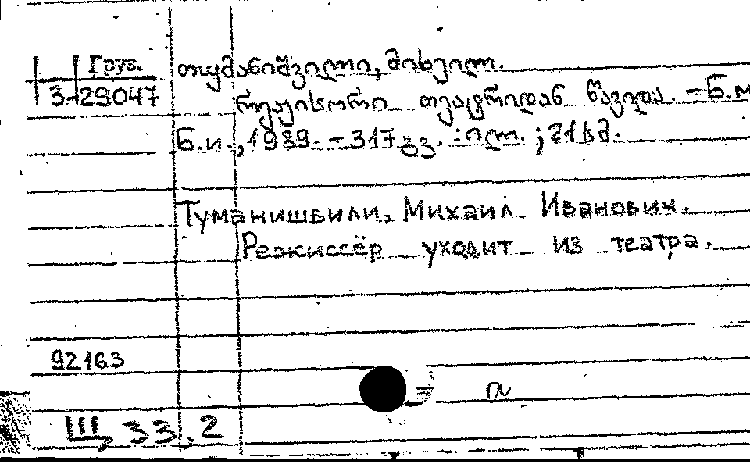 Груз.
3-29047
თუმანიშვილი, მიხეილ.
რეჟისორი თეატრიდან წავიდა. – Б.м
Б.и., 1989. – 317 გვ. : ილ. ; 21 სმ.
Туманишвили, Михаил Иванович.
Режиссёр уходит из театра.
92163
Щ, 33.2